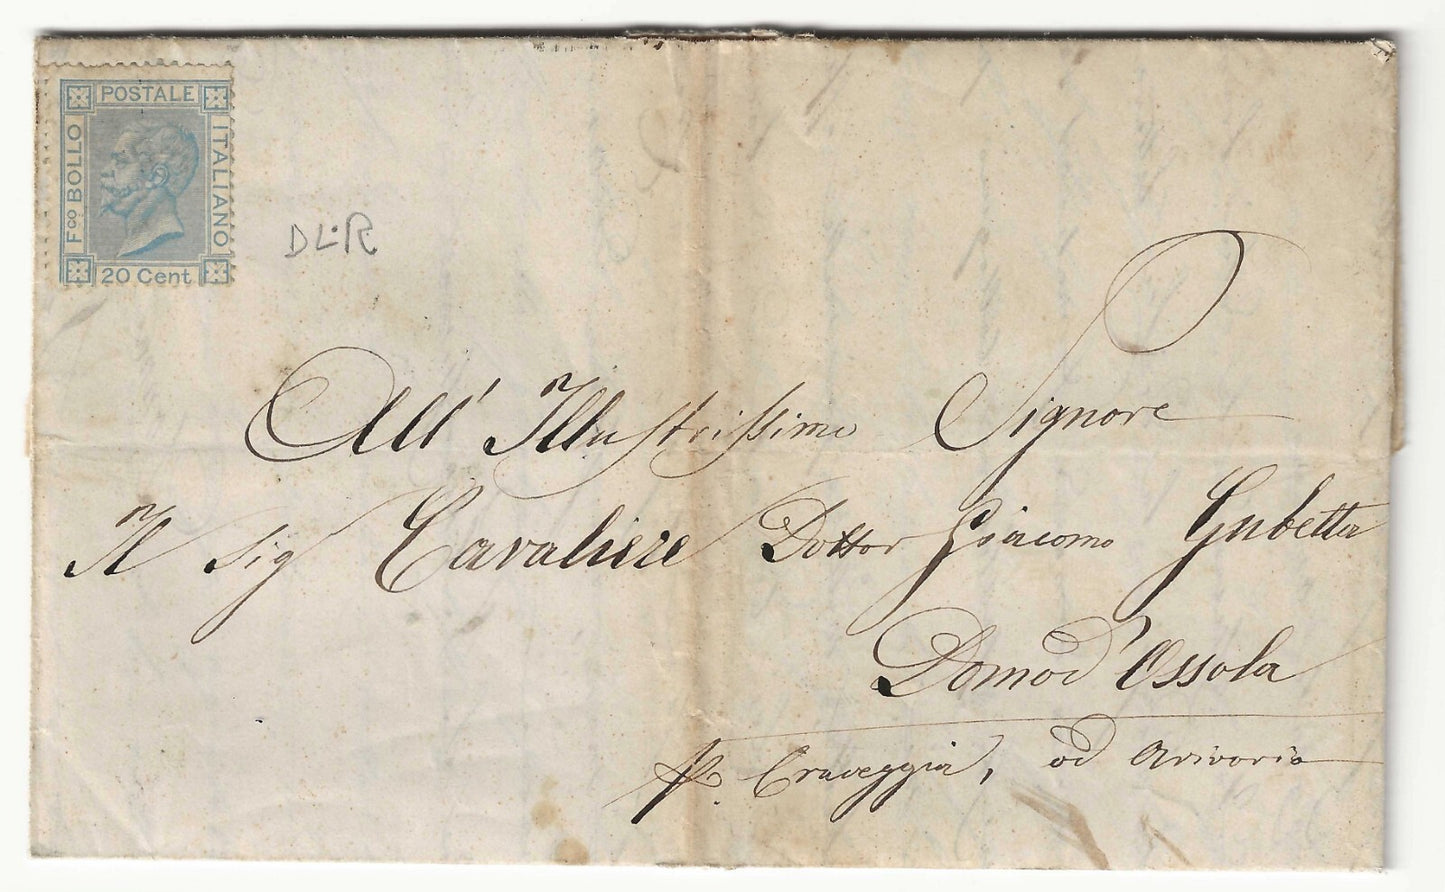 POSTALE
Fco BOLLO
ITALIANO
20 Cent
DLR
All' Illustrissimo Signore
Il Sig Cavaliere Dottor Giacomo Gubetta
Domod'Ossola
p. Craveggia, od